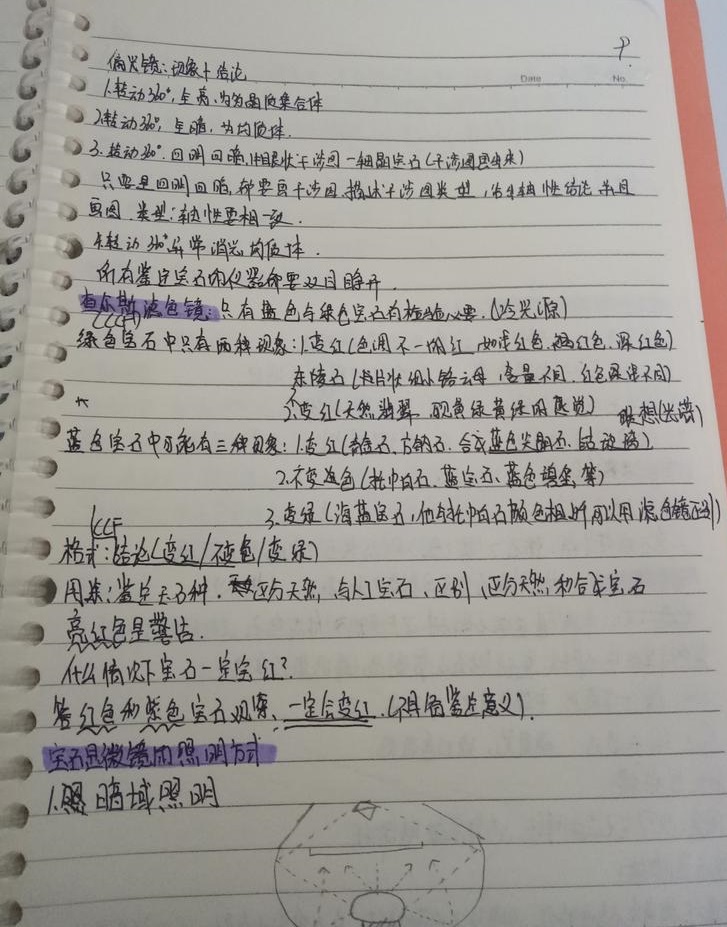 P.
Date No.
偏光镜:现象+结论
1.转动360°,全亮,为多晶质集合体
2.转动360°,全暗,为均质体.
3.转动360°.四明四暗,黑十状干涉图一轴晶宝石(干涉图画出来)
只要是四明四暗,都要画干涉图,描述干涉图类型,给出轴性结论,并且
画图 类型:轴性要相一致.
4.转动360°异常消光,均质体.
所有鉴定宝石的仪器都要双目睁开.
查尔斯滤色镜:只有蓝色与绿色宝石有检验必要.(冷光源)
(CCF)
绿色宝石中只有两种现象:1.变红(色调不一的红,如浅红色,褐红色,深红色)
东陵石(片状细小铬云母,含量不同,红色深浅不同)
2.变红(天然翡翠 现黄绿黄绿的感觉) 联想(光谱)
蓝色宝石中可能有三种现象:1.变红(青金石.方钠石.合成蓝色尖晶石.钴玻璃)
2.不变色(托帕石、蓝宝石、蓝色碧玺等)
3.变绿(海蓝宝石,他与托帕石颜色相近,可以用滤色镜区别)
CCF
格式:结论(变红/不变色/变绿)
用途:鉴定 区分天然,与人工宝石,区别,区分天然和合成宝石
亮红色是警告.
什么情况下宝石一定变红?
答红色和紫色宝石观察,一定会变红.(不具备鉴定意义).
宝石显微镜的照明方式
1.暗域照明